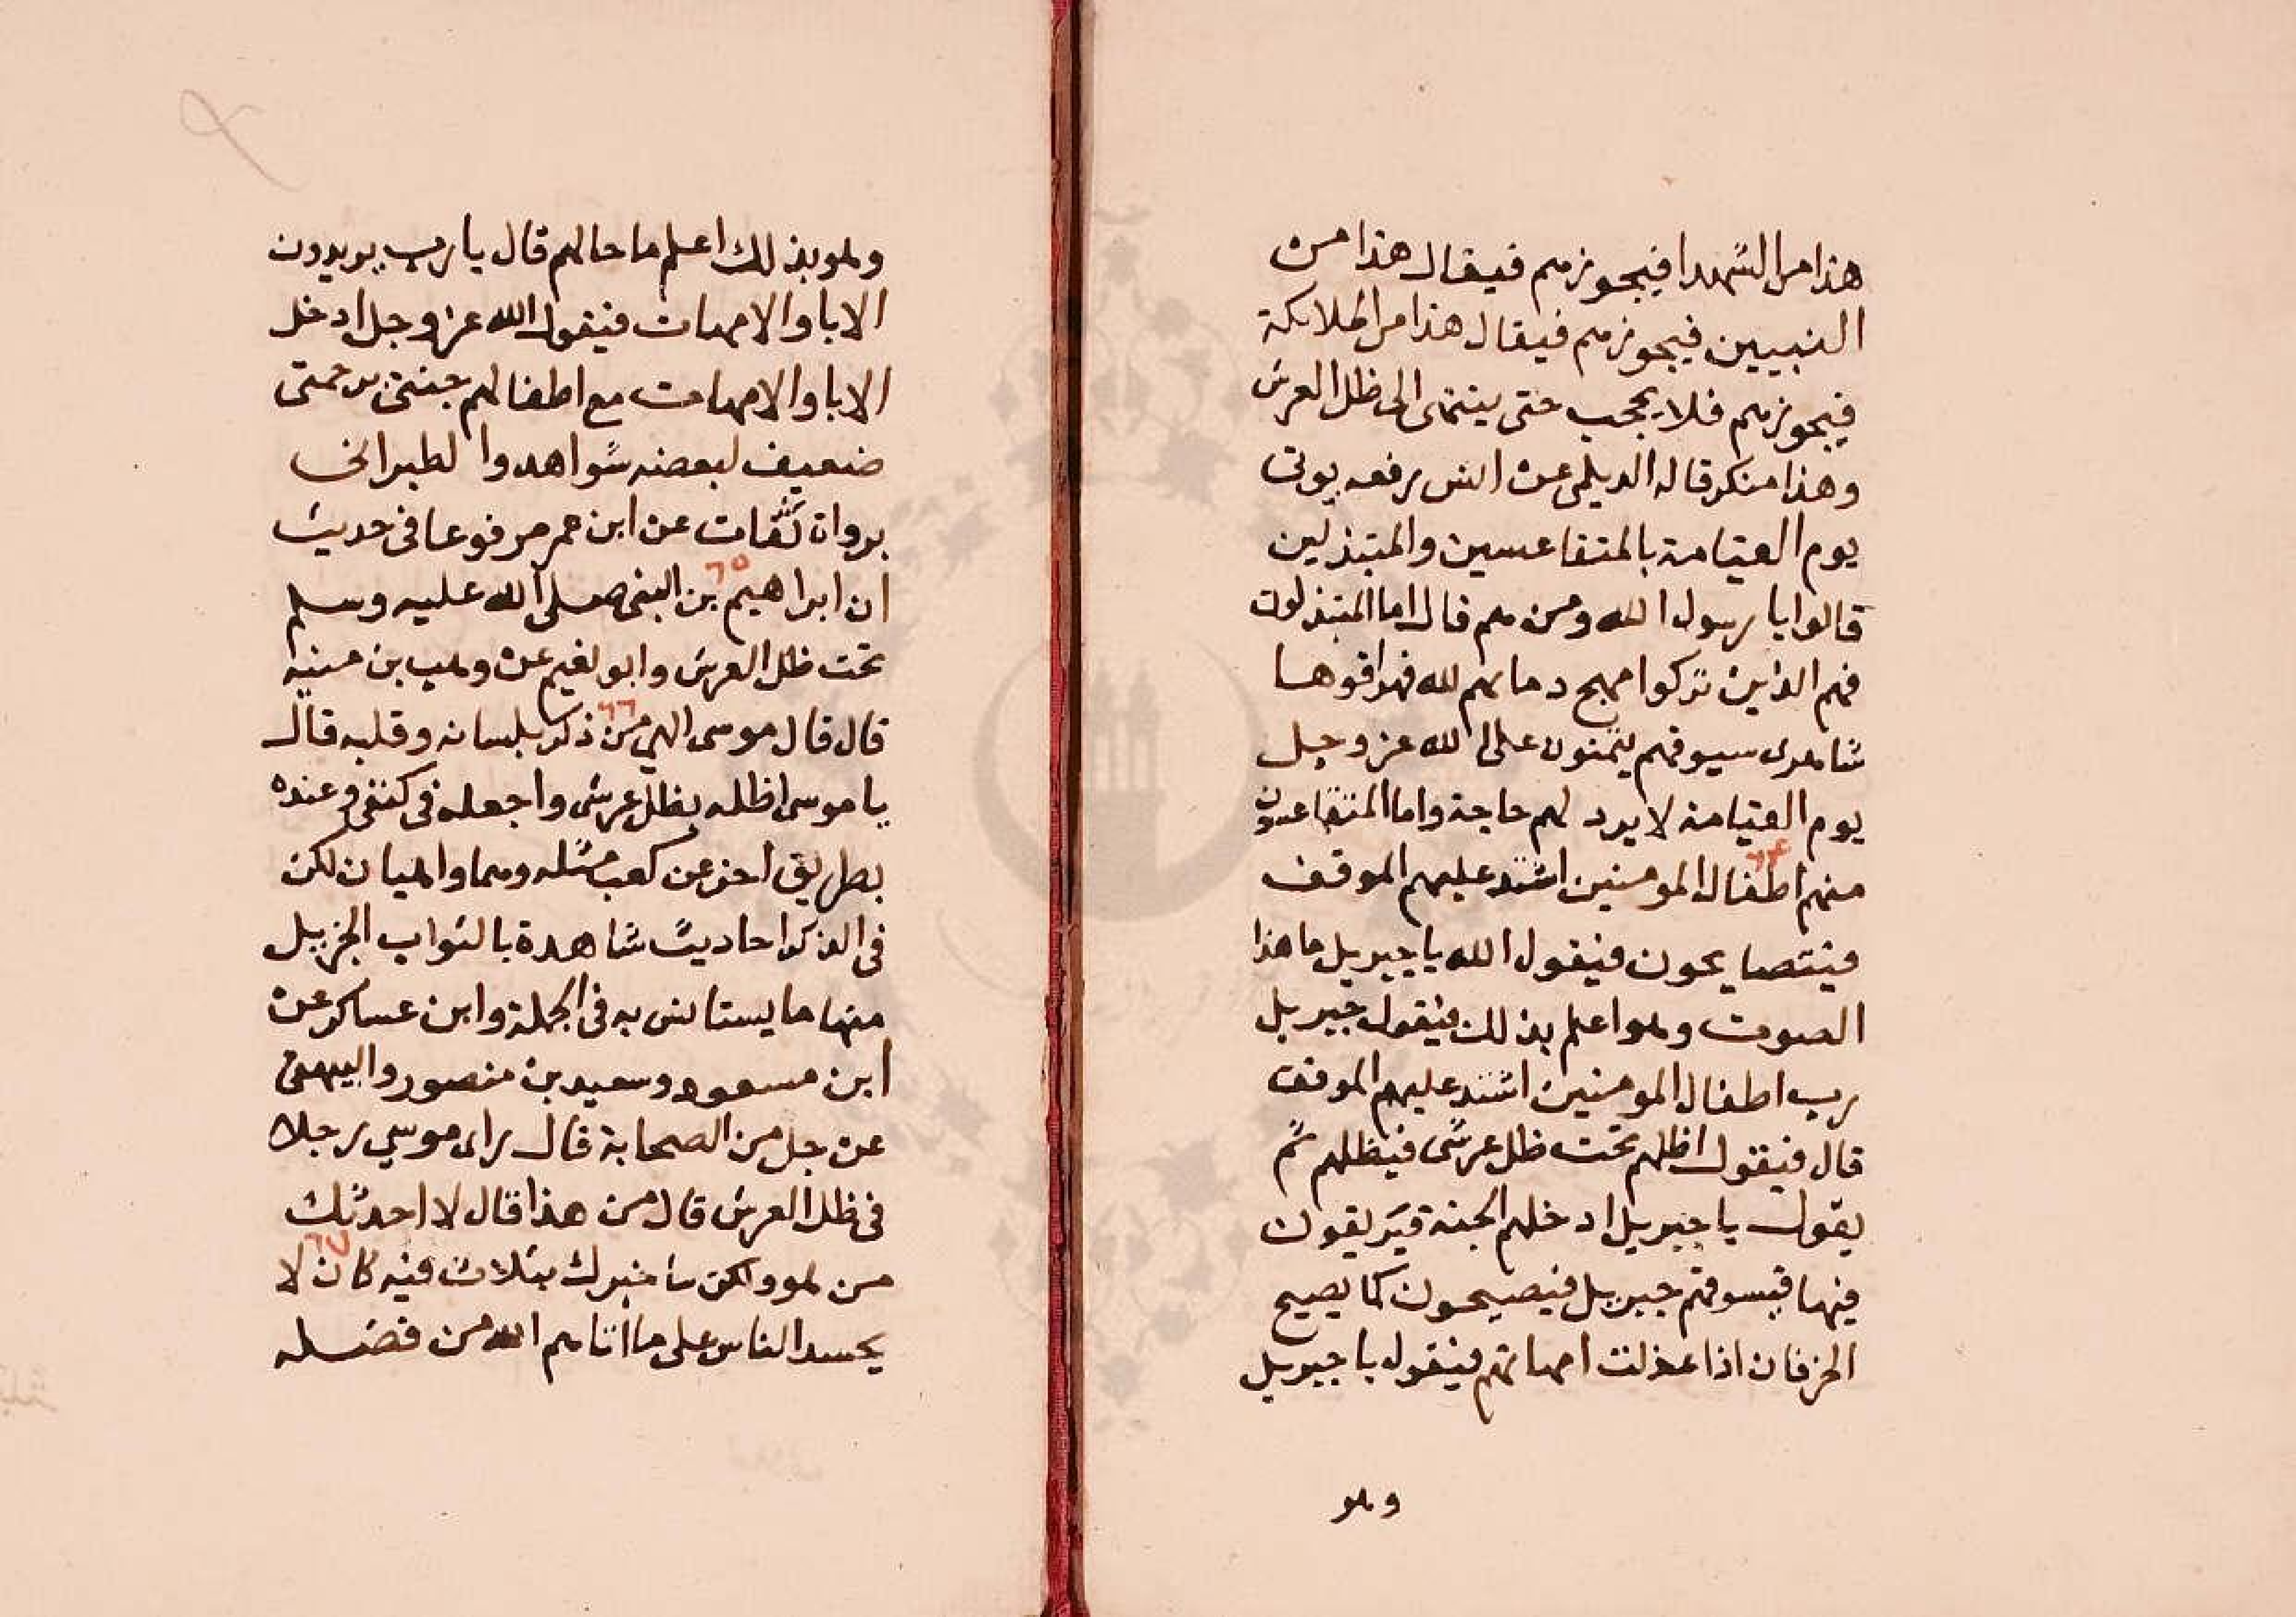 هذا من الشهدا فيجوزهم فيقال هذا من
النبيين فيجوزهم فيقال هذا من الملائكة
فيجوزهم فلا يحجب حتى ينتهى الى ظل العرش
وهذا منكر قاله الديلمى عن انس رفعه يوتى
يوم القيامة بالمتقاعسين والمتبذلين
قالوا يا رسول الله ومن هم قال اما المتبذلون
فهم الذين تركوا مهج دماهم لله فهراقوها
شاهرى سيوفهم يتمنون على الله عز وجل
يوم القيامة لا يرد لهم حاجة واما المتقاعسون
٦٤
منهم اطفال المومنين اشتد عليهم الموقف
فيتصايحون فيقول الله يا جبريل ما هذا
الصوت وهو اعلم بذلك فيقول جبريل
رب اطفال المومنين اشتد عليهم الموقف
قال فيقول اظلهم تحت ظل عرشى فيظلهم ثم
يقول يا جبريل ادخلهم الجنة فيرتعون
فيها فيسوقهم جبريل فيصيحون كما يصيح
الخرفان اذا عذلت امهاتهم فيقول يا جبريل
وهو
وهو بذلك اعلم ما حالهم قال يا رب يريدون
الابا والامهات فيقول الله عز وجل ادخل
الابا والامهات مع اطفالهم جنتى برحمتى
ضعيف لبعضه شواهد والطبرانى
برواة ثقات عن ابن عمر مرفوعا فى حديث
٦٥
ان ابراهيم بن النبى صلى الله عليه وسلم
تحت ظل العرش وابو نعيم عن وهب بن منبه
٦٦
قال قال موسى الهى من ذكرك بلسانه وقلبه قال
يا موسى اظله بظل عرشى واجعله فى كنفى وعنده
بطريق اخر عن كعب مثله وهما واهيان لكن
فى الذكر احاديث شاهدة بالثواب الجزيل
منها ما يستانس به فى الجملة وابن عساكر عن
ابن مسعود وسعيد بن منصور والبيهقى
عن جل من الصحابة قال راى موسى رجلا
فى ظل العرش قال من هذا قال لا احدثك
٦٧
من هو ولكن ساخبرك بثلاث فيه كان لا
يحسد الناس على ما اتاهم الله من فضله